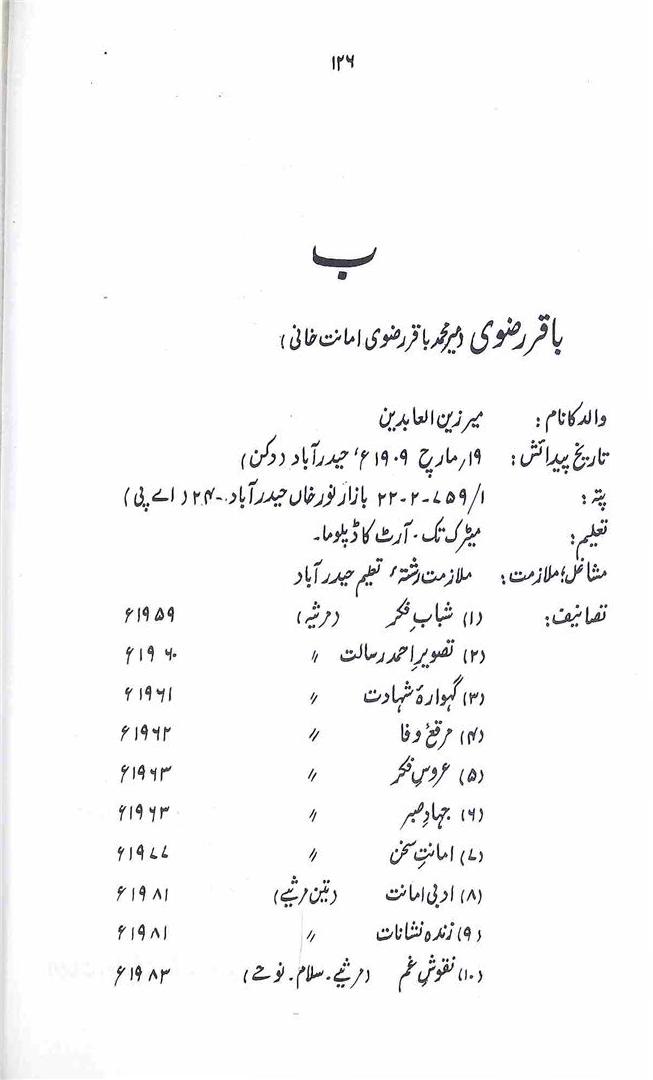 ۱۲۶
ب
باقر رضوی (میر محمد باقر رضوی امانت خانی)
والد کا نام: میر زین العابدین
تاریخ پیدائش: ۱۹ر مارچ ۱۹۰۹ء، حیدرآباد (دکن)
پتہ: ۱/۷۵۹-۲-۲۲ بازار نور خاں حیدرآباد۔-۲۴ (اے پی)
تعلیم: میٹرک تک۔ آرٹ کا ڈپلوما۔
مشاغل؛ ملازمت: ملازمت رشتۂ تعلیم حیدرآباد
تصانیف: (۱) شبابِ فکر (مرثیہ) ۱۹۵۹ء
(۲) تصویرِ احمد رسالت 〃 ۱۹۶۰ء
(۳) گہوارۂ شہادت 〃 ۱۹۶۱ء
(۴) مرقعِ وفا 〃 ۱۹۶۲ء
(۵) عروسِ فکر 〃 ۱۹۶۳ء
(۶) جہادِ صبر 〃 ۱۹۶۳ء
(۷) امانتِ سخن 〃 ۱۹۷۷ء
(۸) ادبی امانت (تین مرثیے) ۱۹۸۱ء
(۹) زندہ نشانات 〃 ۱۹۸۱ء
(۱۰) نقوشِ غم (مرثیے۔ سلام۔ نوحے) ۱۹۸۳ء